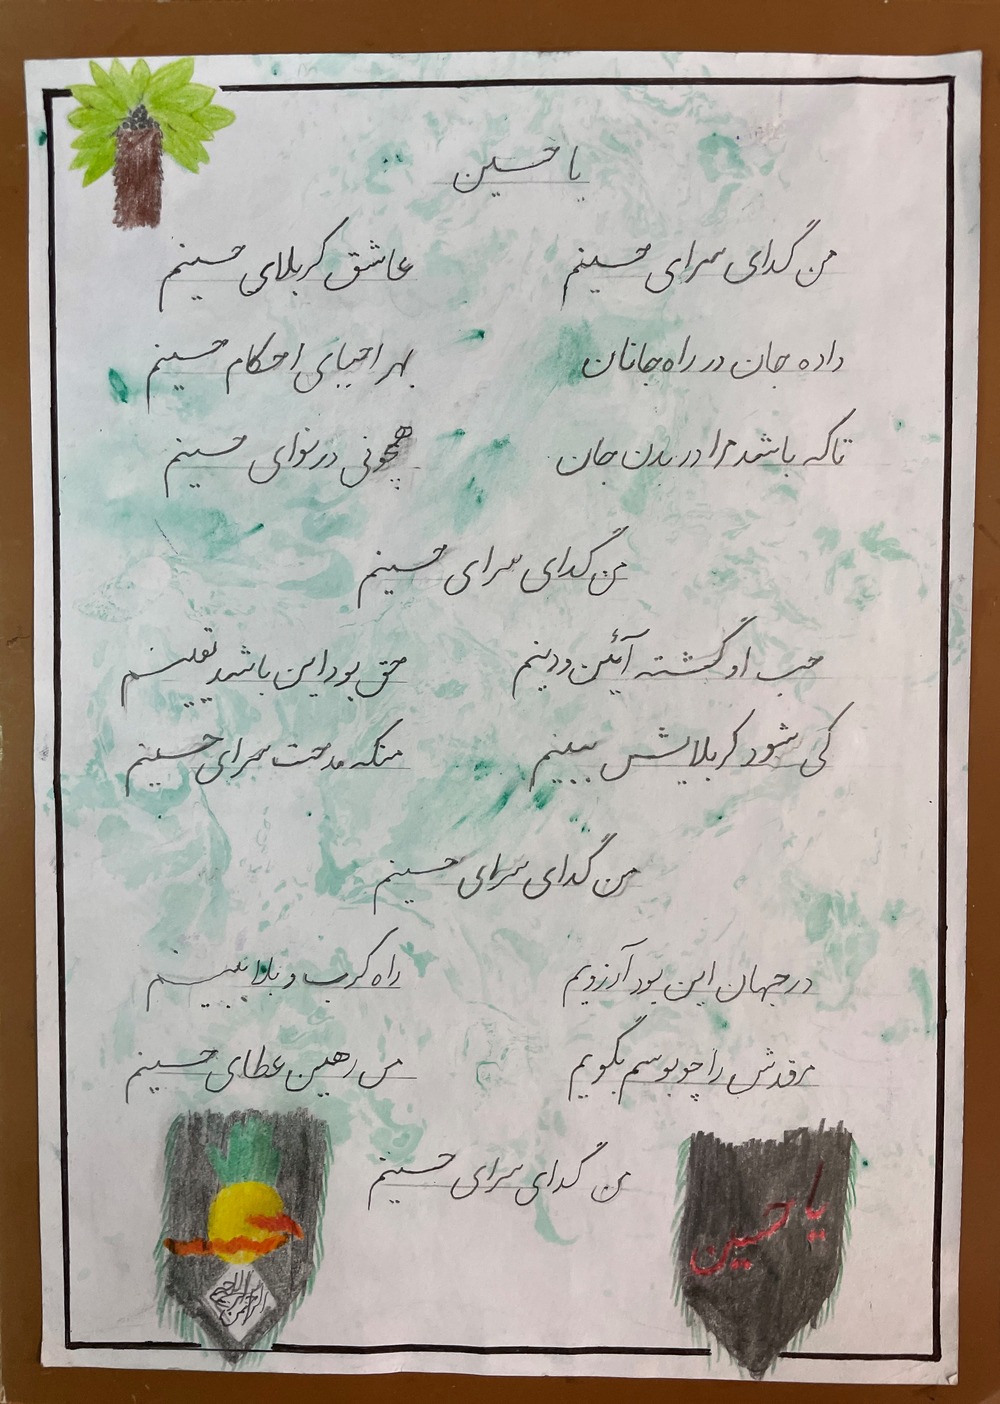 یا حسین
من گدای سرای حسینم عاشق کربلای حسینم
داده جان در راه جانان بهر احیای احکام حسینم
تا که باشد مرا در بدن جان همچونی در نوای حسینم
من گدای سرای حسینم
حب او گشته آئین و دینم حق بود این باشد یقینم
کی شود کربلایش ببینم منکه مدحت سرای حسینم
من گدای سرای حسینم
در جهان این بود آرزویم راه کرب و بلا ببینم
مرقدش را چو بوسم بگویم من رهین عطای حسینم
من گدای سرای حسینم
یا حسین
بسم الله الرحمن الرحیم